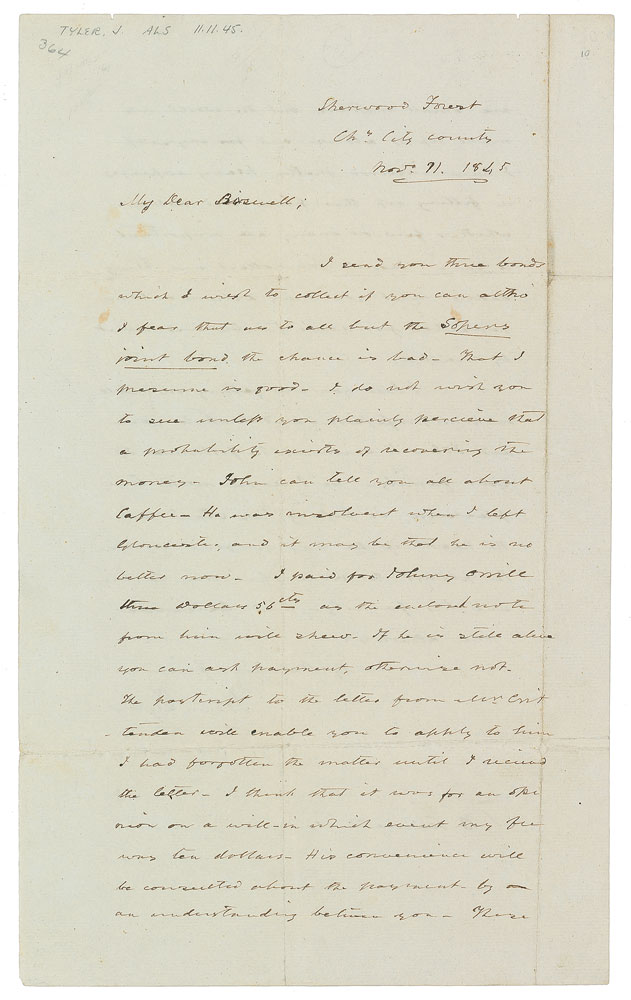 TYLER. J. ALS 11.11.45.
364
10
Sherwood Forest
Chs City county
Novr. 11. 1845
My Dear Boswell;
I send you three bonds
which I wish to collect if you can altho
I fear that as to all but the Sopers
joint bond, the chance is bad - That I
presume is good - I do not wish you
to sue unless you plainly percieve that
a probability exists of recovering the
money - John can tell you all about
Caffee - He was insolvent when I left
Gloucester, and it may be that he is no
better now - I paid for Johnny
three Dollars 56 cts as the enclosed note
from him will shew. If he is still alive
you can ask payment, otherwise not.
The postcript to the letter from Mr. Crit
tenden will enable you to apply to him
I had forgotten the matter until I recieved
the letter - I think that it was for an opi
nion on a will - in which event my fee
was ten dollars - His convenience will
be consulted about the payment - by
an understanding between you - These